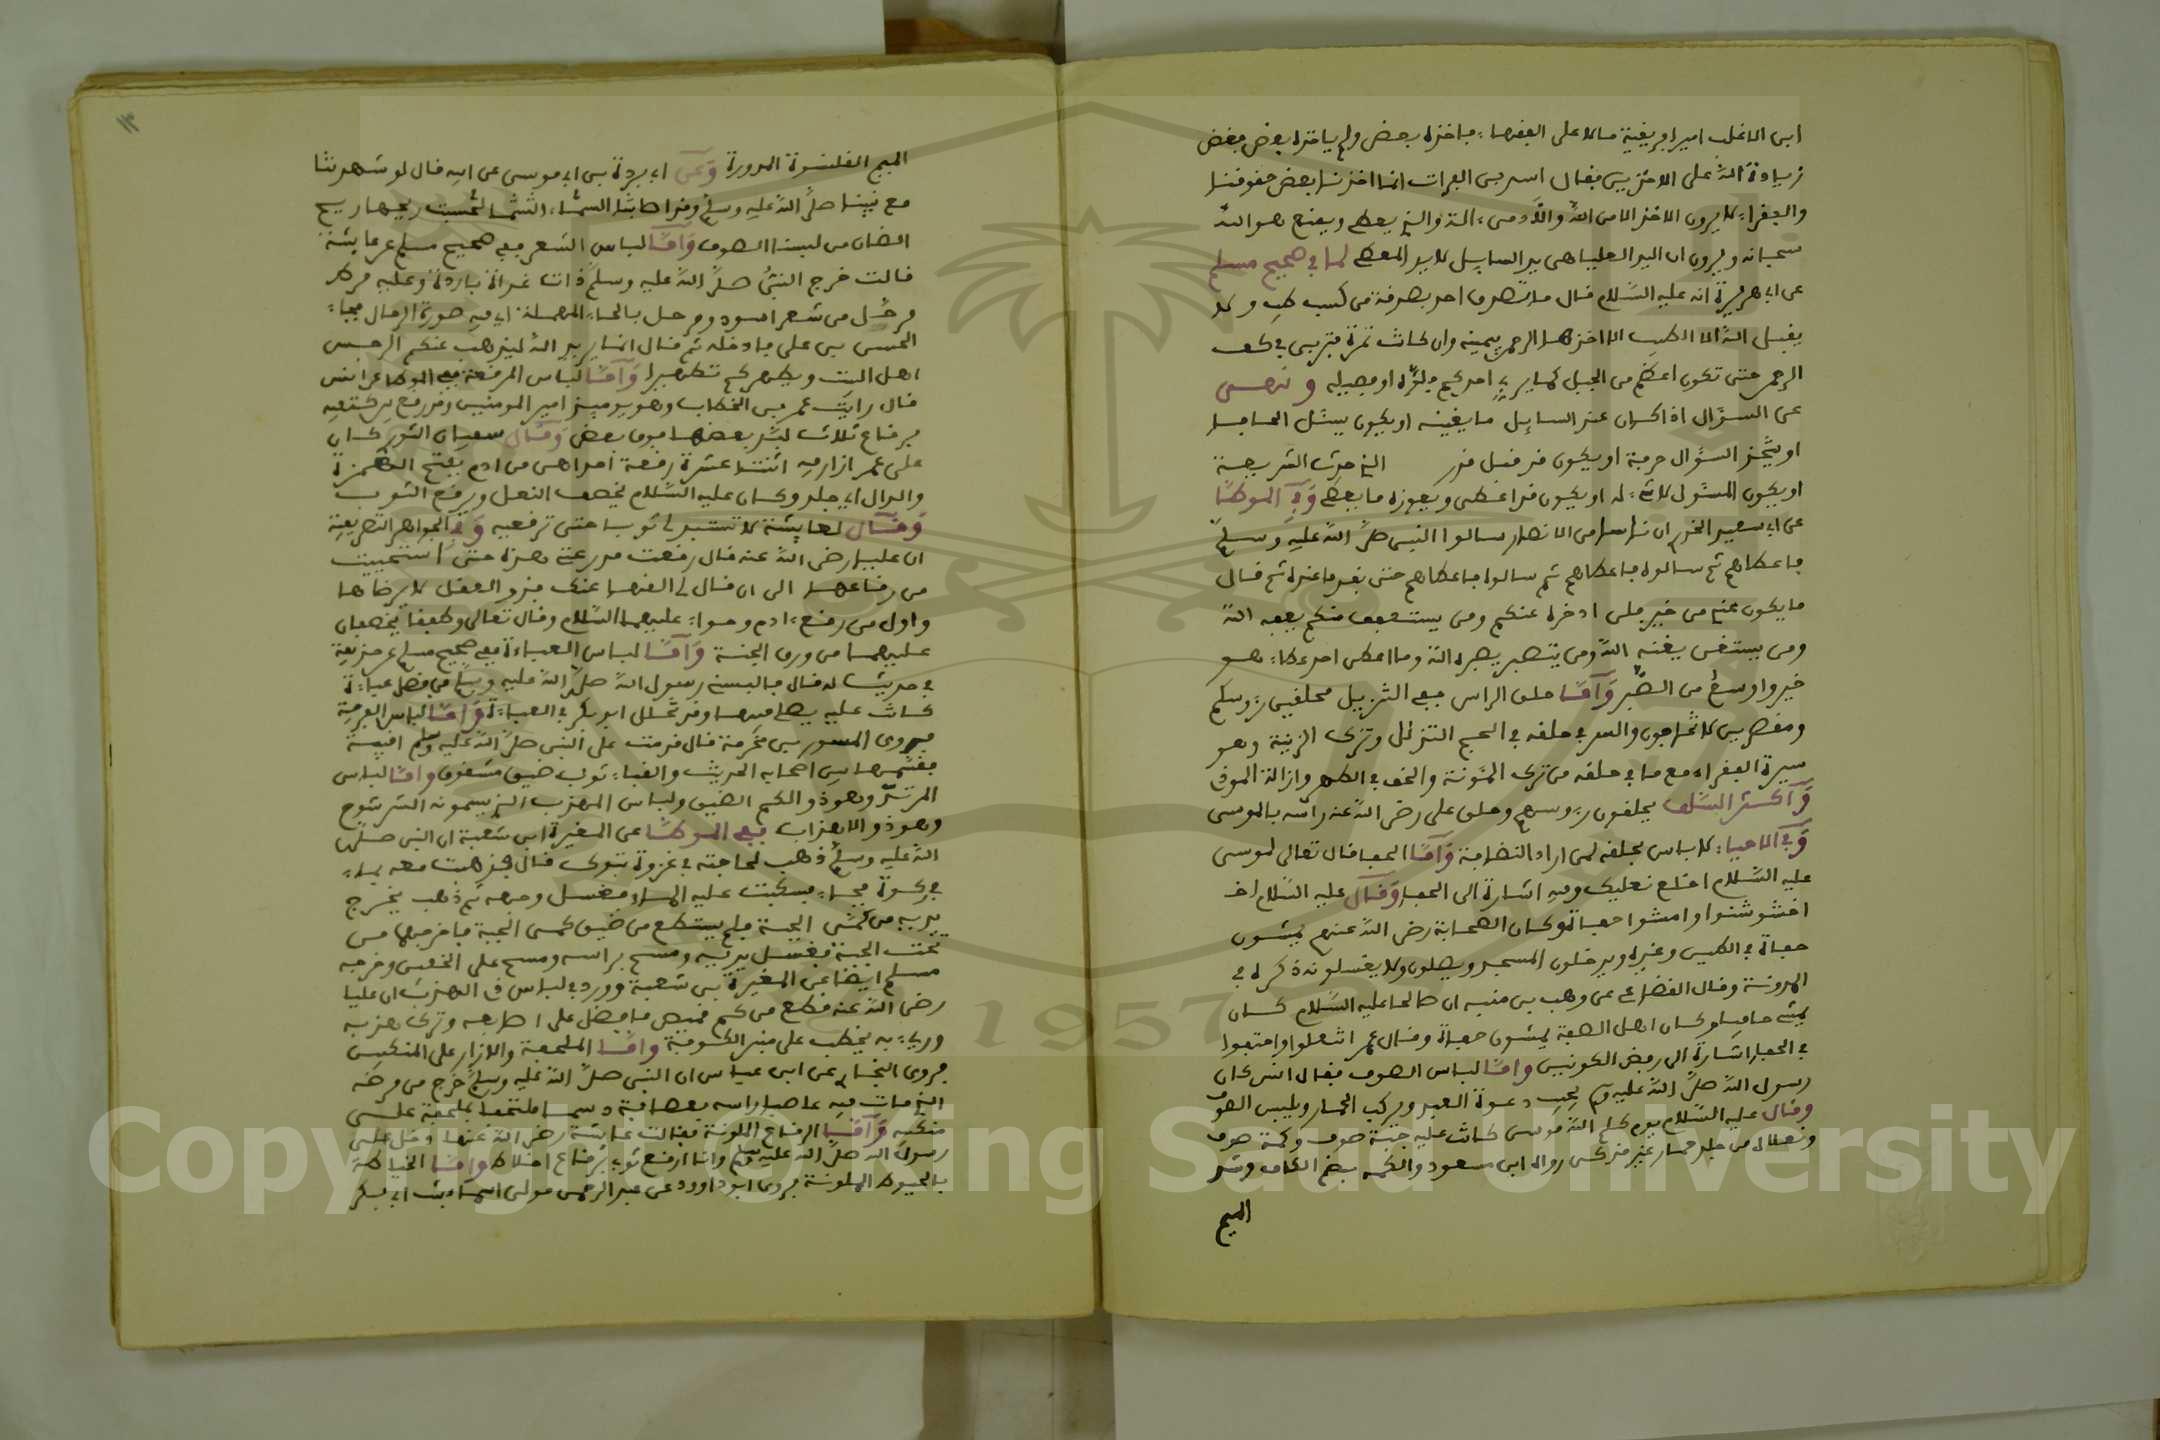 ابن الاغلب امير افريقية مالا على الفقهاء فاخذه بعض ولم ياخذه بعض فغض
زيادة الله على الاخذين فقال اسد بن الفرات انما اخذنا بعض حقوقنا
والفقراء لا يرون الاخذ الا من الله والادمى الة والذي يعطى ويمنع هو الله
سبحانه ويرون ان اليد العليا هى يد السايل لا يد المعطى لما في صحيح مسلم
عن ابي هريرة انه عليه السلام قال ما تصدق احد بصدقة من كسب طيب ولا
يقبل الله الا الطيب الا اخذها الرحمن بيمينه وان كانت تمرة فتربى في كف
الرحمن حتى تكون اعظم من الجبل كما يربي احدكم فلوه او فصيله ونهى
عن السؤال اذا كان عند السايل ما يغنيه او يكون يسئل الحافا
او يتخذ السؤال حرفة او يكون قد قبل قدر الذي حدث الشريعة
او يكون المسئول لاشيء له او يكون قد اعطى ويعوزه ما يعطى وفي الموطا
عن ابي سعيد الخدري ان ناسا من الانصار سالوا النبي صلى الله عليه وسلم
فاعطاهم ثم سالوه فاعطاهم ثم سالوا فاعطاهم حتى نفد ما عنده ثم قال
ما يكون عندي من خير فلن ادخره عنكم ومن يستعفف منكم يعفه الله
ومن يستغن يغنه الله ومن يتصبر يصبره الله وما اعطى احد عطاء هو
خير واوسع من الصبر واما حلق الراس ففي التنزيل محلقين رءوسكم
ومقصرين لا تخافون والسر في حلقه في الحج التذلل وترك الزينة وهو
سيرة الفقراء مع ما في حلقه من ترك المئونة والخف في الطهر وازالة الموذى
واكثر السلف يحلقون رءوسهم وحلق على رضى الله عنه راسه بالموسى
وفي الاحياء لا باس بحلقه لمن اراد النظافة واما الحفا فقال تعالى لموسى
عليه السلام اخلع نعليك وفيه اشارة الى الحفا وقال عليه السلام اخ
اخشوشنوا وامشوا حفاة وكان الصحابة رضى الله عنهم يمشون
حفاة في الطين وغيره ويدخلون المسجد ويصلون ولا يغسلونه ذكره في
المدونة وقال القضاعي عن وهب بن منبه ان صالحا عليه السلام كان
يمشي حافيا وكان اهل الصفة يمشون حفاة وقال عمر انتعلوا وامتعوا
في الحفا اشارة الى رفض الكونين واما لباس الصوف فقال انس كان
رسول الله صلى الله عليه وسلم يجيب دعوة العبد ويركب الحمار ويلبس الصوف
وقال عليه السلام يوم كلم الله موسى كانت عليه جبة صوف وكمة صوف
ونعلاه من جلد حمار غير مذكى رواه ابن مسعود والكمه بضم الكاف وشد
الميم
الميم القلنسوة المدورة وعن ابي بردة بن ابي موسى عن ابيه قال لو شهدتنا
مع نبينا صلى الله عليه وسلم وقد اصابتنا السماء لحسبت ريحها ريح
الضان من لبسنا الصوف واما لباس الشعر ففي صحيح مسلم عن عايشة
قالت خرج النبي صلى الله عليه وسلم ذات غداة باردة وعليه مرط
مرحل من شعر اسود ومرحل بالحاء المهملة اي فيه صورة الرحال فجاء
الحسن بن علي فادخله ثم قال انما يريد الله ليذهب عنكم الرجس
اهل البيت ويطهركم تطهيرا واما لباس المرقعة ففي الموطا عن انس
قال رايت عمر بن الخطاب وهو يوميذ امير المومنين وقد رقع بين كتفيه
برقاع ثلاث لبد بعضها فوق بعض وقال سفيان الثوري كان
على عمر ازار فيه اثنتا عشرة رقعة احداهن من ادم بفتح الهمزة
والدال اي جلد وكان عليه السلام يخصف النعل ويرقع الثوب
وقال لعايشة لا تستبدلى ثوبا حتى ترقعيه وفي الجواهر الشريفية
ان عليا رضى الله عنه قال رقعت مدرعتي هذه حتى استحييت
من رقاعها الى ان قال لى القها عنك فذو العقل لا يرضاها
واول من رقع ادم وحوا عليهما السلام وقال تعالى وطفقا يخصفان
عليهما من ورق الجنة واما لباس العباءة ففي صحيح مسلم عن حذيفة
في حديث له قال فالبسني رسول الله صلى الله عليه وسلم من فضل عباءة
كانت عليه يصلي فيها وقد تخلل ابو بكر في العباءة واما لباس الفرجية
فروى المسور بن مخرمة قال قدمت على النبي صلى الله عليه وسلم اقبية
فقسمها بين اصحابه الحديث والقباء ثوب ضيق مشقوق واما لباس
المرتر وهو ذو الكم الضيق ولباس المهدب الذي يسمونه الشرشوح
وهو ذو الاهداب ففي الموطا عن المغيرة ابن شعبة ان النبي صلى
الله عليه وسلم ذهب لحاجته في غزوة تبوك قال فذهبت معه بماء
في ركوة فجاء فسكبت عليه الماء فغسل وجهه ثم ذهب يخرج
يديه من كمى الجبة فلم يستطع من ضيق كمى الجبة فاخرجهما من
تحت الجبة فغسل يديه ومسح براسه ومسح على الخفين وخرجه
مسلم ايضا عن المغيرة بن شعبة وورد في لباس ذي الهدب ان عليا
رضى الله عنه قطع من كم قميص ما فضل على اصابعه وترك هدبه
ورىء به يخطب على منبر الكوفة واما الملحفة والازار على المنكبين
فروى البخاري عن ابن عباس ان النبي صلى الله عليه وسلم خرج من مرضه
الذي مات فيه عاصبا راسه بعصابة دسما ملتحفا بملحفة على
منكبيه واما الرقاع الملونة فقالت عايشة رضى الله عنها دخل على
رسول الله صلى الله عليه وسلم وانا ارقع ثوبي برقاع اخلاط واما الخياطة
بالخيوط الملونة فروى ابو داوود عن عبد الرحمن مولى اسماء بنت ابي بكر
1957
Copyright © King Saud University